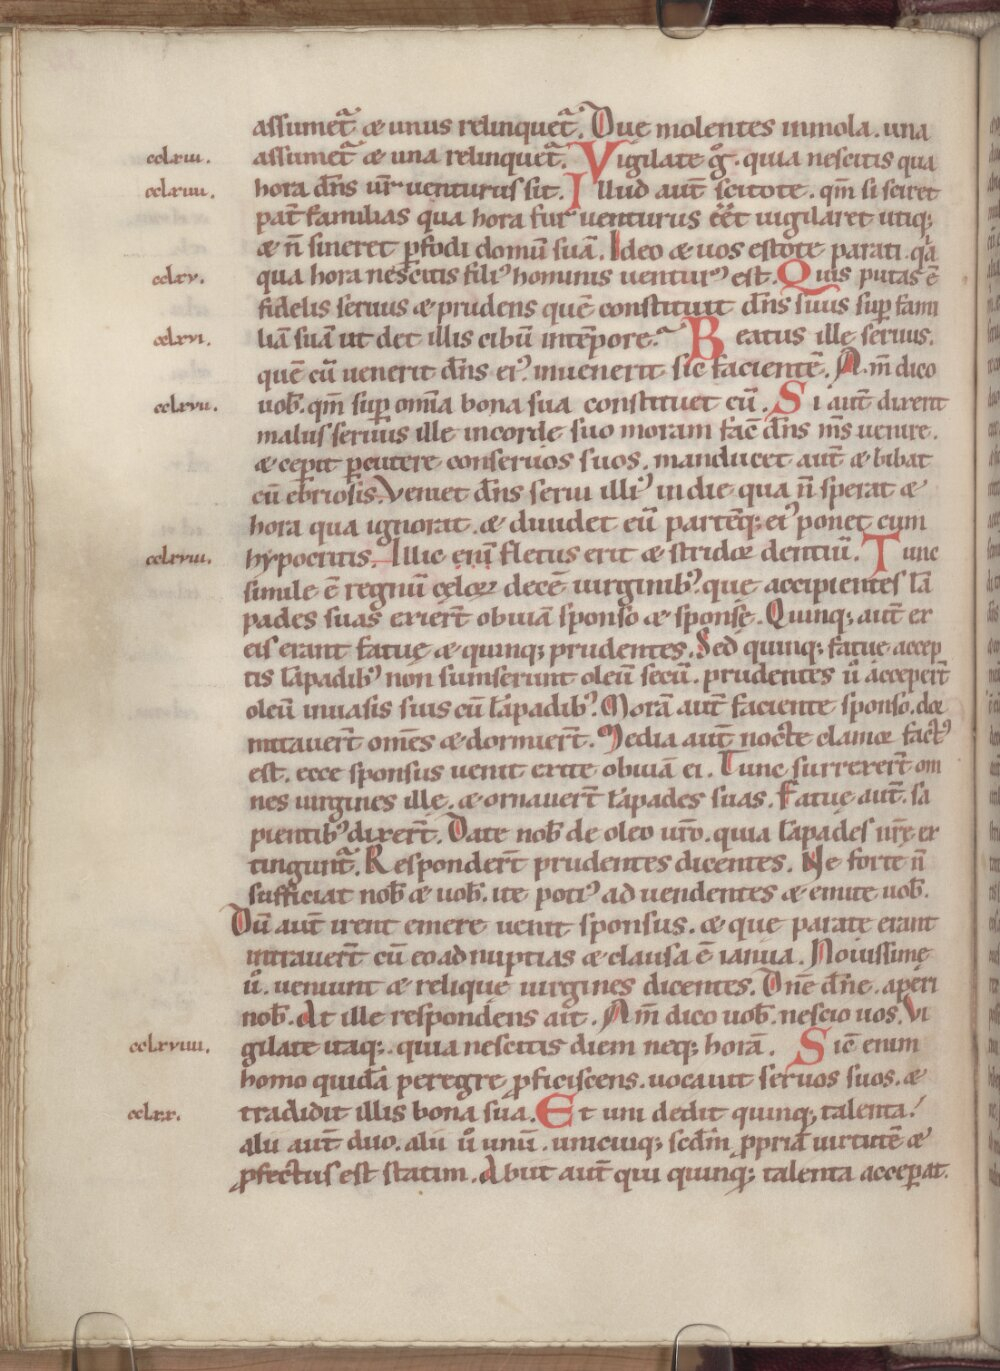 assumet᷑ & unus relinquet᷑. Due molentes in mola. una
cclxiii. assumet᷑ & una relinquet᷑. Vigilate gͦ. quia nescitis qua
cclxiiii. hora dn̄s ur̄ uenturus sit. Illud aut̄ scitote. qm̄ si sciret
pat̄ familias qua hora fur uenturus eēt uigilaret utiq;
& n̄ sineret ꝑfodi domū suā. Ideo & uos estote parati. q̇a
cclxv. qua hora nescitis filiꝰ hominis uenturꝰ est. Quis putas ē
fidelis seruus & prudens quē constituit dn̄s suus suꝑ fami
cclxvi. liā suā ut det illis cibū in tēpore? Beatus ille seruus.
quē cū uenerit dn̄s eiꝰ inuenerit sic facientē. Am̄ dico
cclxvii. uob̄. qm̄ suꝑ om̄ia bona sua constituet eū. Si aut̄ dixerit
malus seruus ille in corde suo moram fac̄ dn̄s ms̄ uenire.
& ceperit ꝑcutere conseruos suos. manducet aut̄ & bibat
cū ebriosis. Veniet dn̄s serui illiꝰ in die qua n̄ sperat &
hora qua ignorat. & diuidet eū partēq; eiꝰ ponet cum
cclxviii. hypocritis. Illic enī fletus erit & stridor dentiū. Tunc
simile ē regnū celoꝝ decē uirginibꝰ. quę accipientes lā
pades suas exier̄t obuiā sponso & sponsę. Quinq; aut̄ ex
eis erant fatuę & quinq; prudentes. Sed quinq; fatuę accep
tis lāpadibꝰ non sumserunt oleū secū. prudentes u̇ acceper̄t
oleū in uasis suis cū lāpadibꝰ. Morā aut̄ faciente sponso. dor
mitauer̄t om̄es & dormier̄t. Media aut̄ nocte clamor factꝰ
est. ecce sponsus uenit exite obuiā ei. Tunc surrexer̄t om
nes uirgines illę. & ornauer̄t lāpades suas. Fatuę aut̄. sa
pientibꝰ dixer̄t. Date nob̄ de oleo ur̄o. quia lāpades nr̄ę ex
tingunt᷑. Responder̄t prudentes dicentes. Ne forte n̄
sufficiat nob̄ & uob̄. ite potiꝰ ad uendentes & emite uob̄.
Dū aut̄ irent emere uenit sponsus. & quę paratę erant
intrauer̄t cū eo ad nuptias & clausa ē ianua. Nouissimę
u̇. ueniunt & reliquię uirgines dicentes. Dn̄e dn̄e. aperi
nob̄. At ille respondens ait. Am̄ dico uob̄. nescio uos. Vi
cclxviiii. gilate itaq;. quia nescitis diem neq; horā. Sic̄ enim
homo quidā peregre ꝓficiscens. uocauit seruos suos. &
cclxx. tradidit illis bona sua. Et uni dedit quinq; talenta.
alii aut̄ duo. alii u̇ unū. unicuiq; scd̄m ꝓpriā uirtutē &
ꝓfectus est statim. Abiit aut̄ qui quinq; talenta acceꝑat.